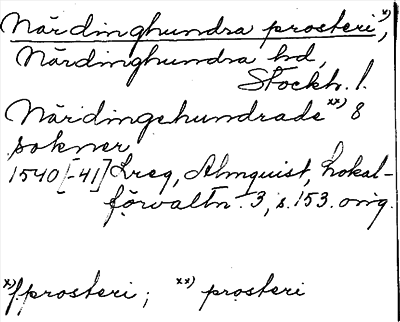 Närdinghundra prosteri x),
Närdinghundra hd,
Stockh. l.
Närdingehundrade xx) 8
sokner
1540[-41] Lreg, Almquist, Lokal-
förvaltn. 3, s. 153. orig.
x) f. prosteri; xx) prosteri